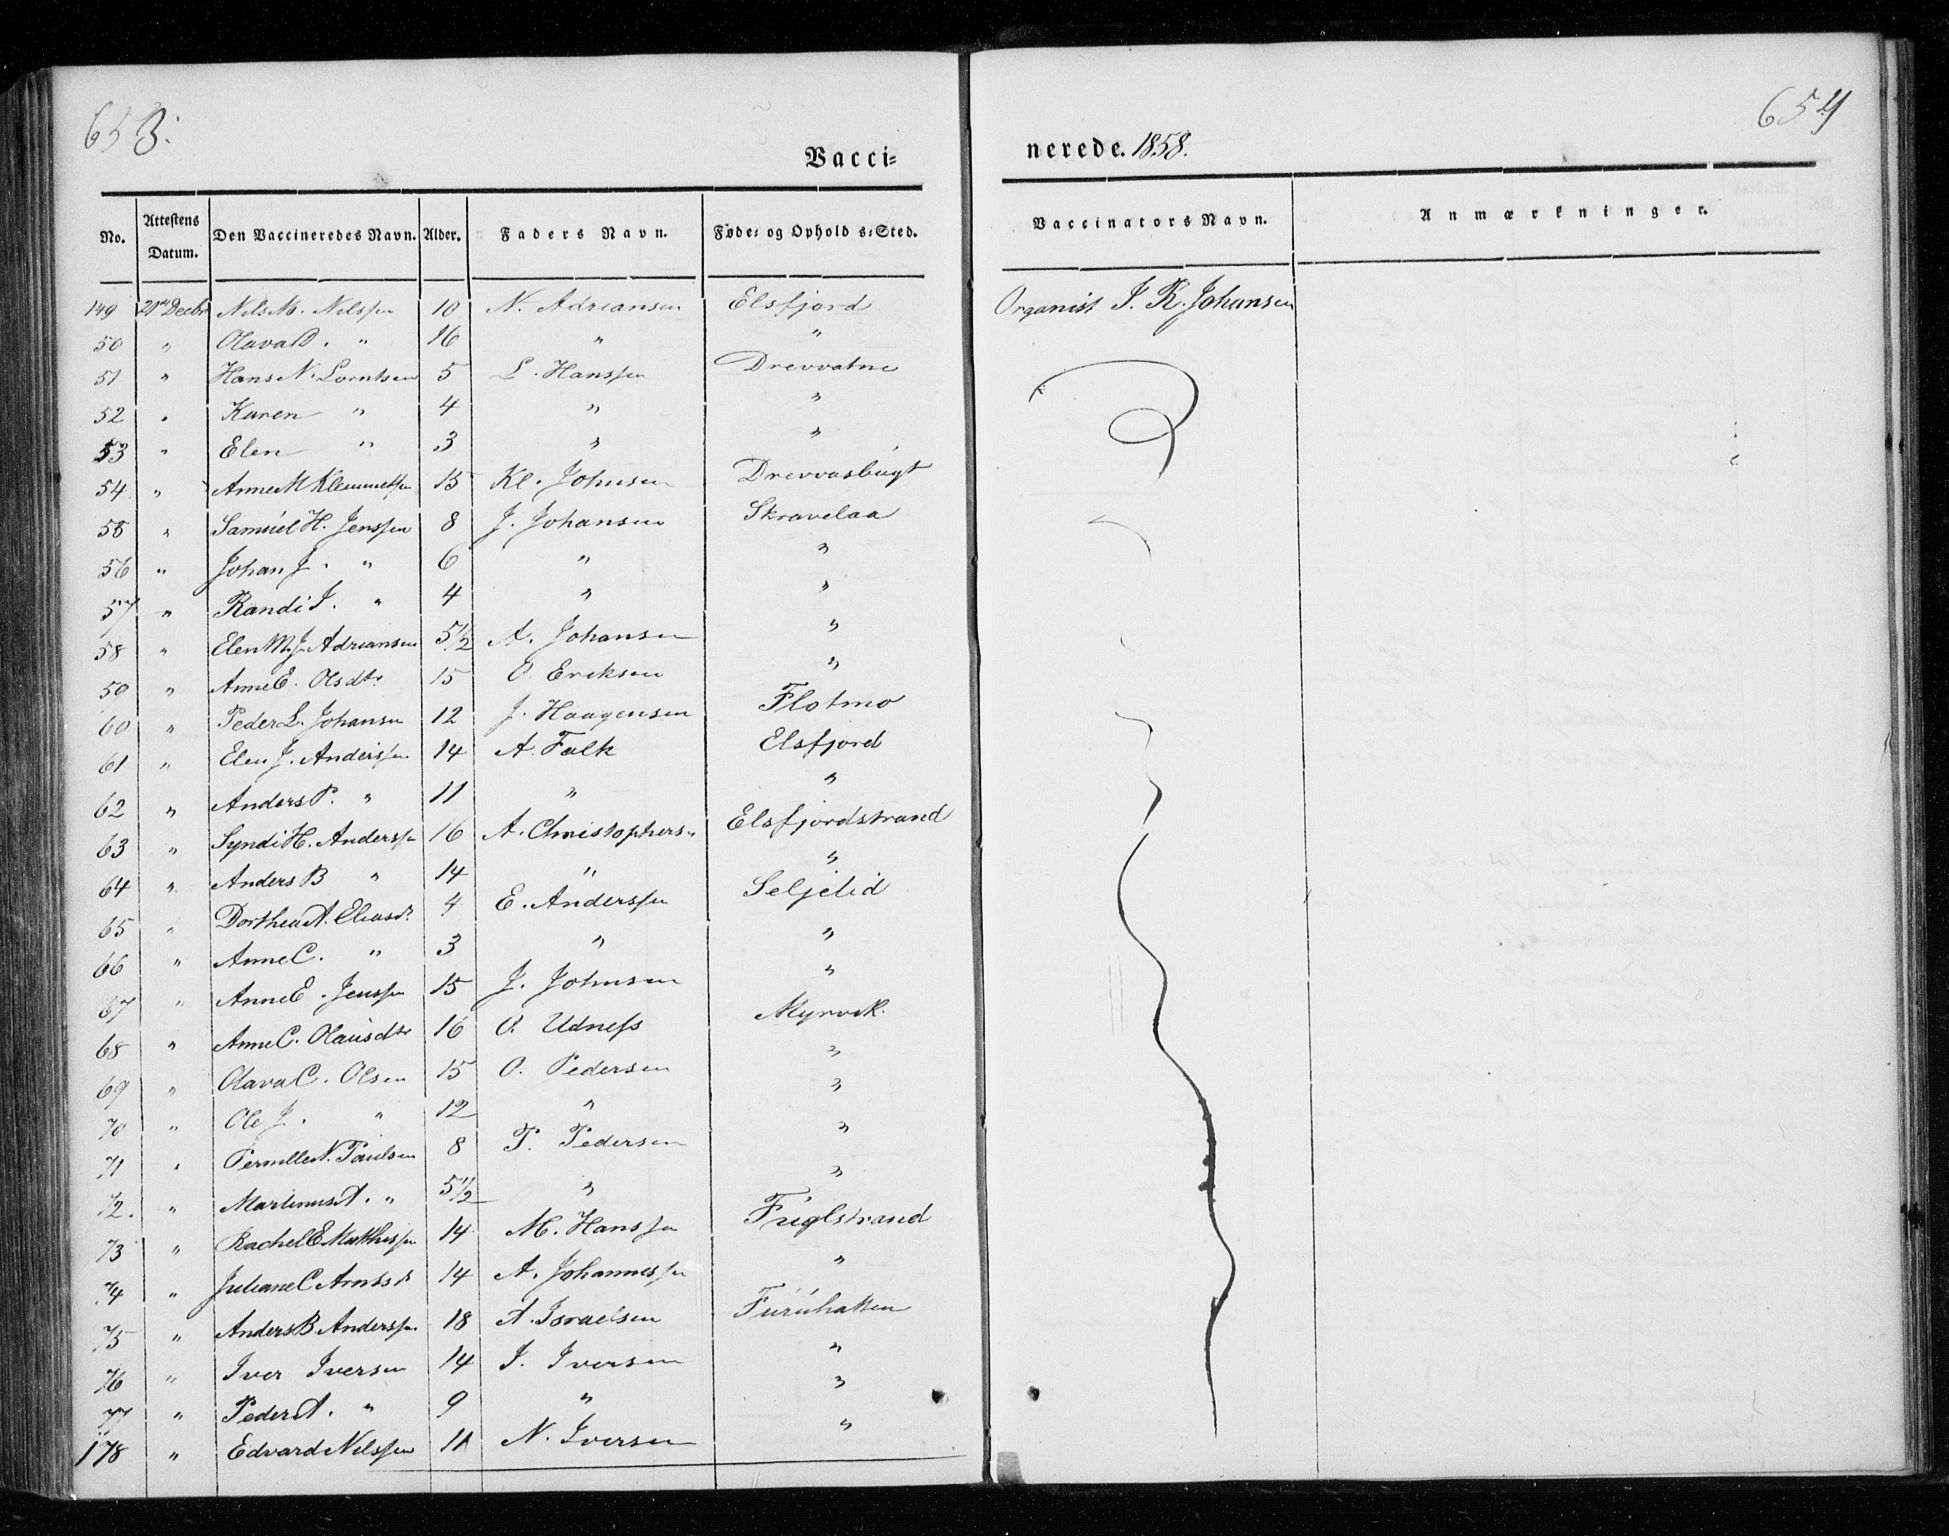 653.
654
Vacci=
nerede. 1858.
No. Attestens Datum. Den Vaccineredes Navn. Alder. Faders Navn. Føde= og Ophold s=Sted. Vaccinators Navn. Anmærkninger.
149 21de Decbr Nils M. Nilssen 10 N. Adriansen Elsfjord Organist J. R. Johansen
50 " Olava D. " 16 " "
51 " Hans N. Lorntsen 5 L. Hanssen Drevvatne
52 " Karen " 4 " "
53 " Elen " 3 " "
54 " Anne M Klemmetsen 15 Kl. Johnsen Drevvasbugt
55 " Samuel H. Jenssen 8 J. Johansen Skravelaa
56 " Johan J. " 6 " "
57 " Randi I. " 4 " "
58 " Elen M. J. Adriansen 5 1/2 A. Johansen "
59 " Anne E. Olsdtr 15 O. Eriksen "
60 " Peder L. Johansen 12 J. Haagensen Flotmo
61 " Elen J. Anderssen 14 A. Falk Elsfjord
62 " Anders P. " 11 " "
63 " Syndi H. Anderssen 16 A. Christophersn Elsfjordstrand
64 " Anders B " 14 " "
65 " Dorthea A. Eliasdr 4 E. Anderssen Seljelid
66 " Anne C. " 3 " "
67 " Anne E. Jenssen 15 J. Johnsen "
68 " Anne C. Olausdtr 16 O. Udness Myrvik.
69 " Olava C. Olsen 15 O. Pedersen "
70 " Ole J. " 12 " "
71 " Pernille N. Paulsen 8 P. Pedersen "
72. " Martinus A. " 5 1/2 " "
73 " Rachel E Matthissen 14 M. Hanssen Fuglstrand
74 " Juliane C Arntsdr 14 A. Johannessen "
75 " Anders B Anderssen 18 A. Israelsen Furuhatten
76 " Iver Iversen 14 I. Iversen "
77 " Peder A. " 9 " "
178 " Edvard Nilssen 11 N. Iversen "